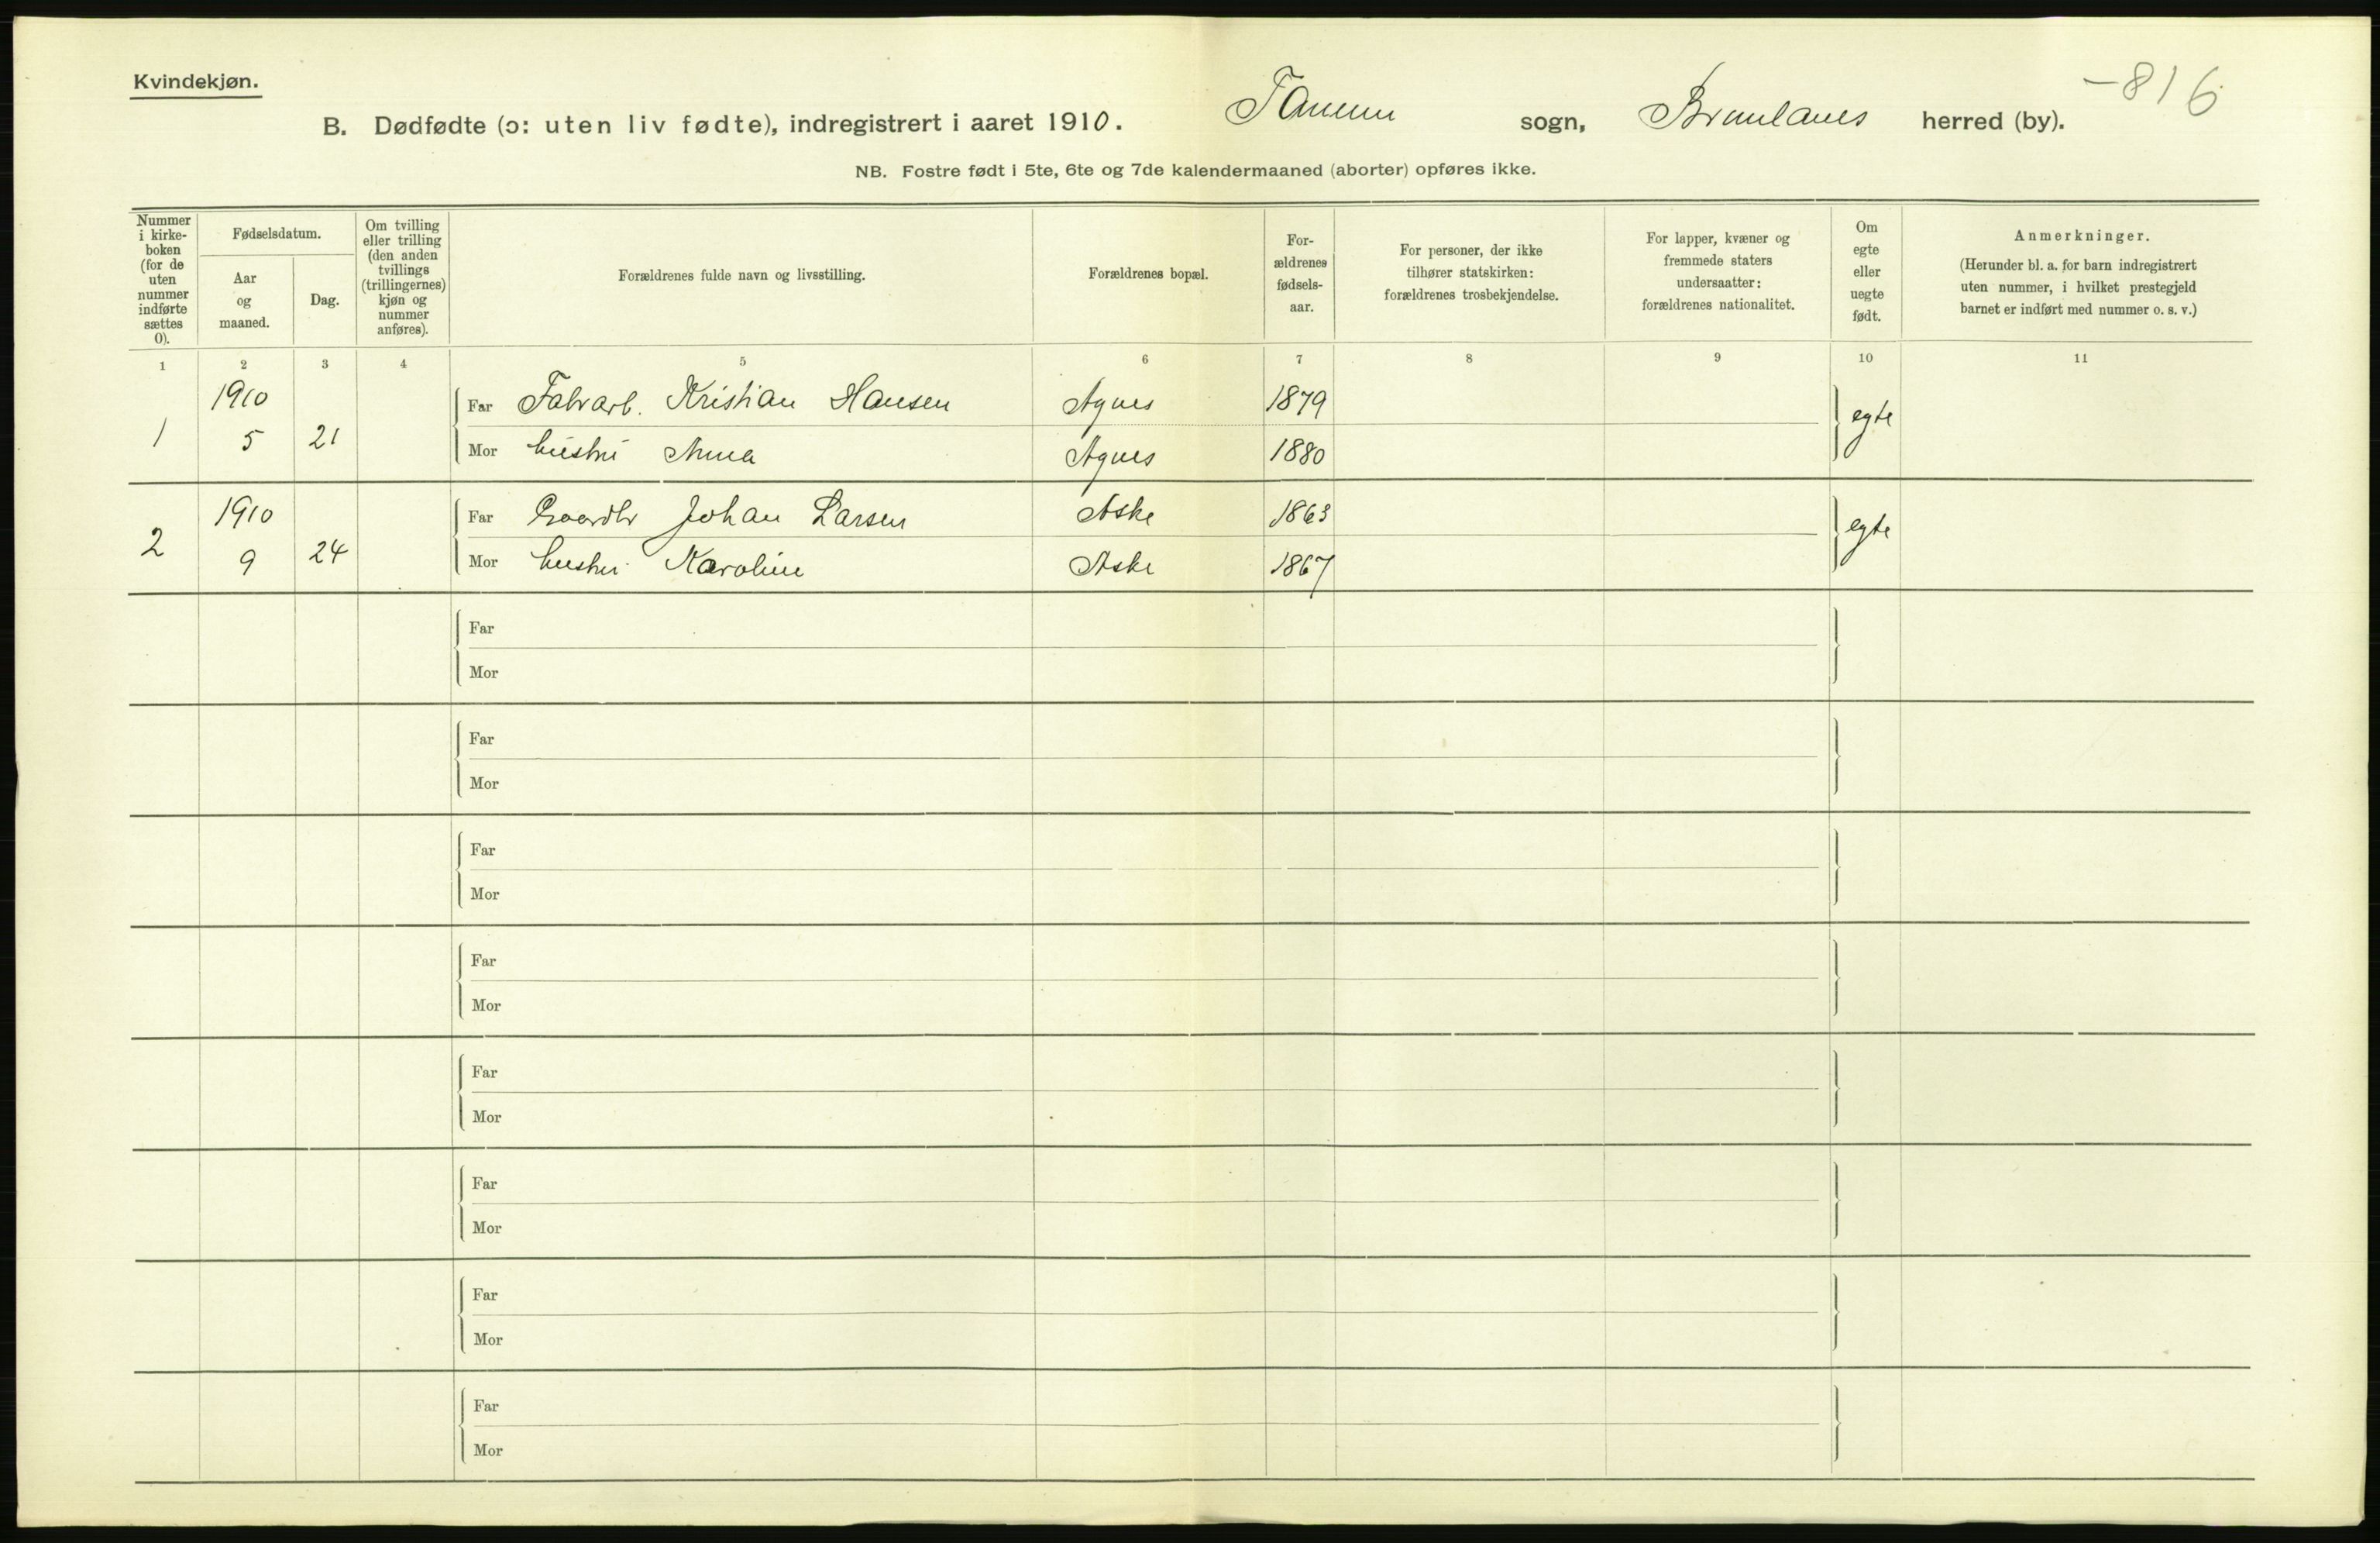 Kvindekjøn.
-816
B. Dødfødte (ɔ: uten liv fødte), indregistrert i aaret 1910. Tanum sogn, Brunlanes herred (by).
NB. Fostre født i 5te, 6te og 7de kalendermaaned (aborter) opføres ikke.
Nummer
i kirke-
boken
(for de
uten
nummer
indførte
sættes
0).
Fødselsdatum.
Aar
og
maaned.
Dag.
Om tvilling
eller trilling
(den anden
tvillings
(trillingernes)
kjøn og
nummer
anføres).
Forældrenes fulde navn og livsstilling.
Forældrenes bopæl.
For-
ældrenes
fødsels-
aar.
For personer, der ikke
tilhører statskirken:
forældrenes trosbekjendelse.
For lapper, kvæner og
fremmede staters
undersaatter:
forældrenes nationalitet.
Om
egte
eller
uegte
født.
Anmerkninger.
(Herunder bl. a. for barn indregistrert
uten nummer, i hvilket prestegjeld
barnet er indført med nummer o. s. v.)
1 2 3 4 5 6 7 8 9 10 11
1910 Far Fabrarb. Kristian Hansen Agnes 1879 egte
1 5 21 Mor hustru Anna Agnes 1880
1910 Far Gaardbr Johan Larsen Aske 1863 egte
2 9 24 Mor hustru Karoline Aske 1867
Far
Mor
Far
Mor
Far
Mor
Far
Mor
Far
Mor
Far
Mor
Far
Mor
Far
Mor